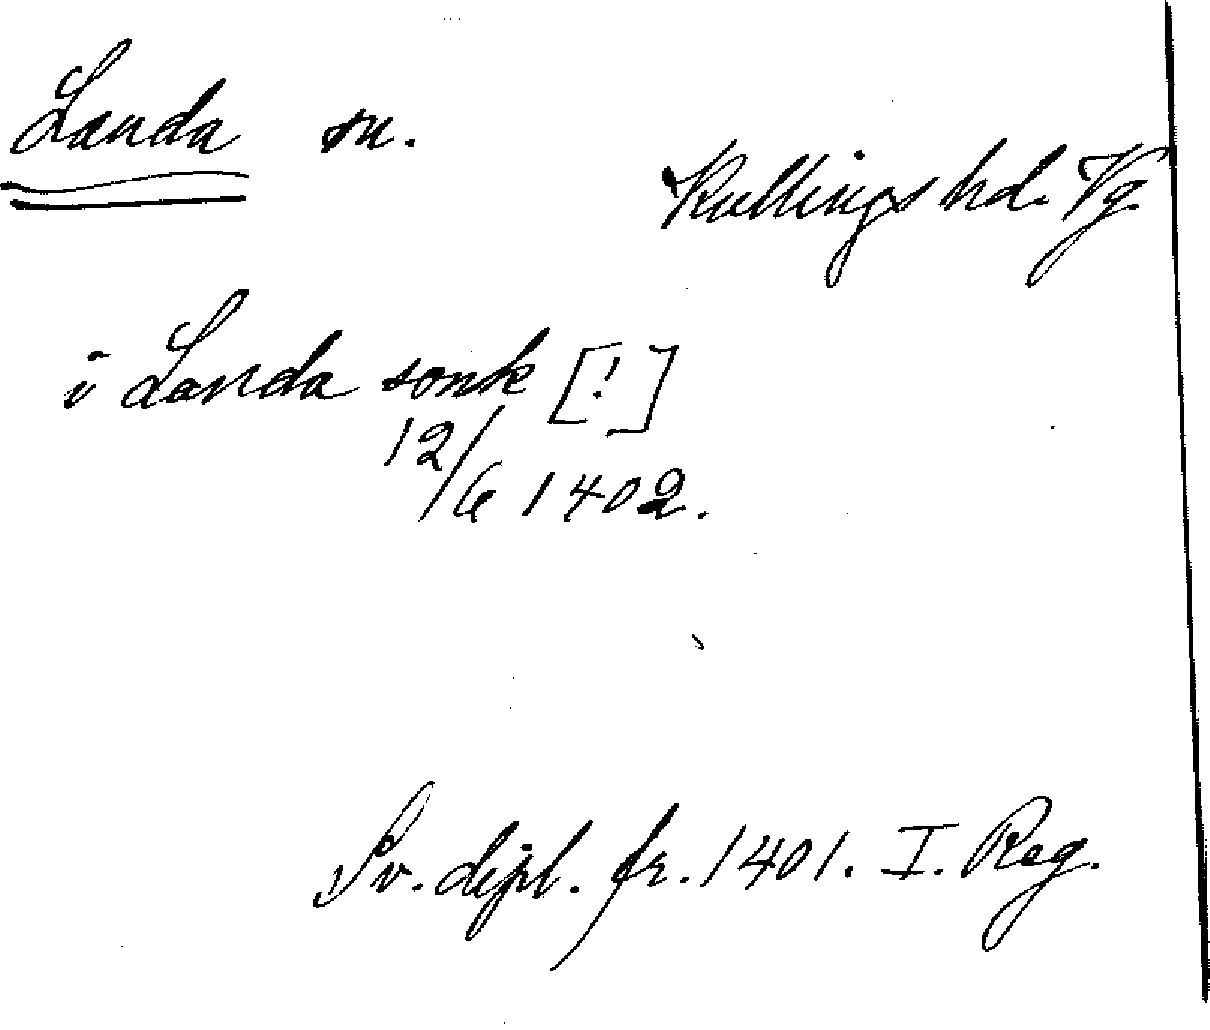 Landa sn.
Kullings hd. Vg.
i Landa sonk [!]
12/6 1402.
Sv. dipl. fr. 1401. I. Reg.